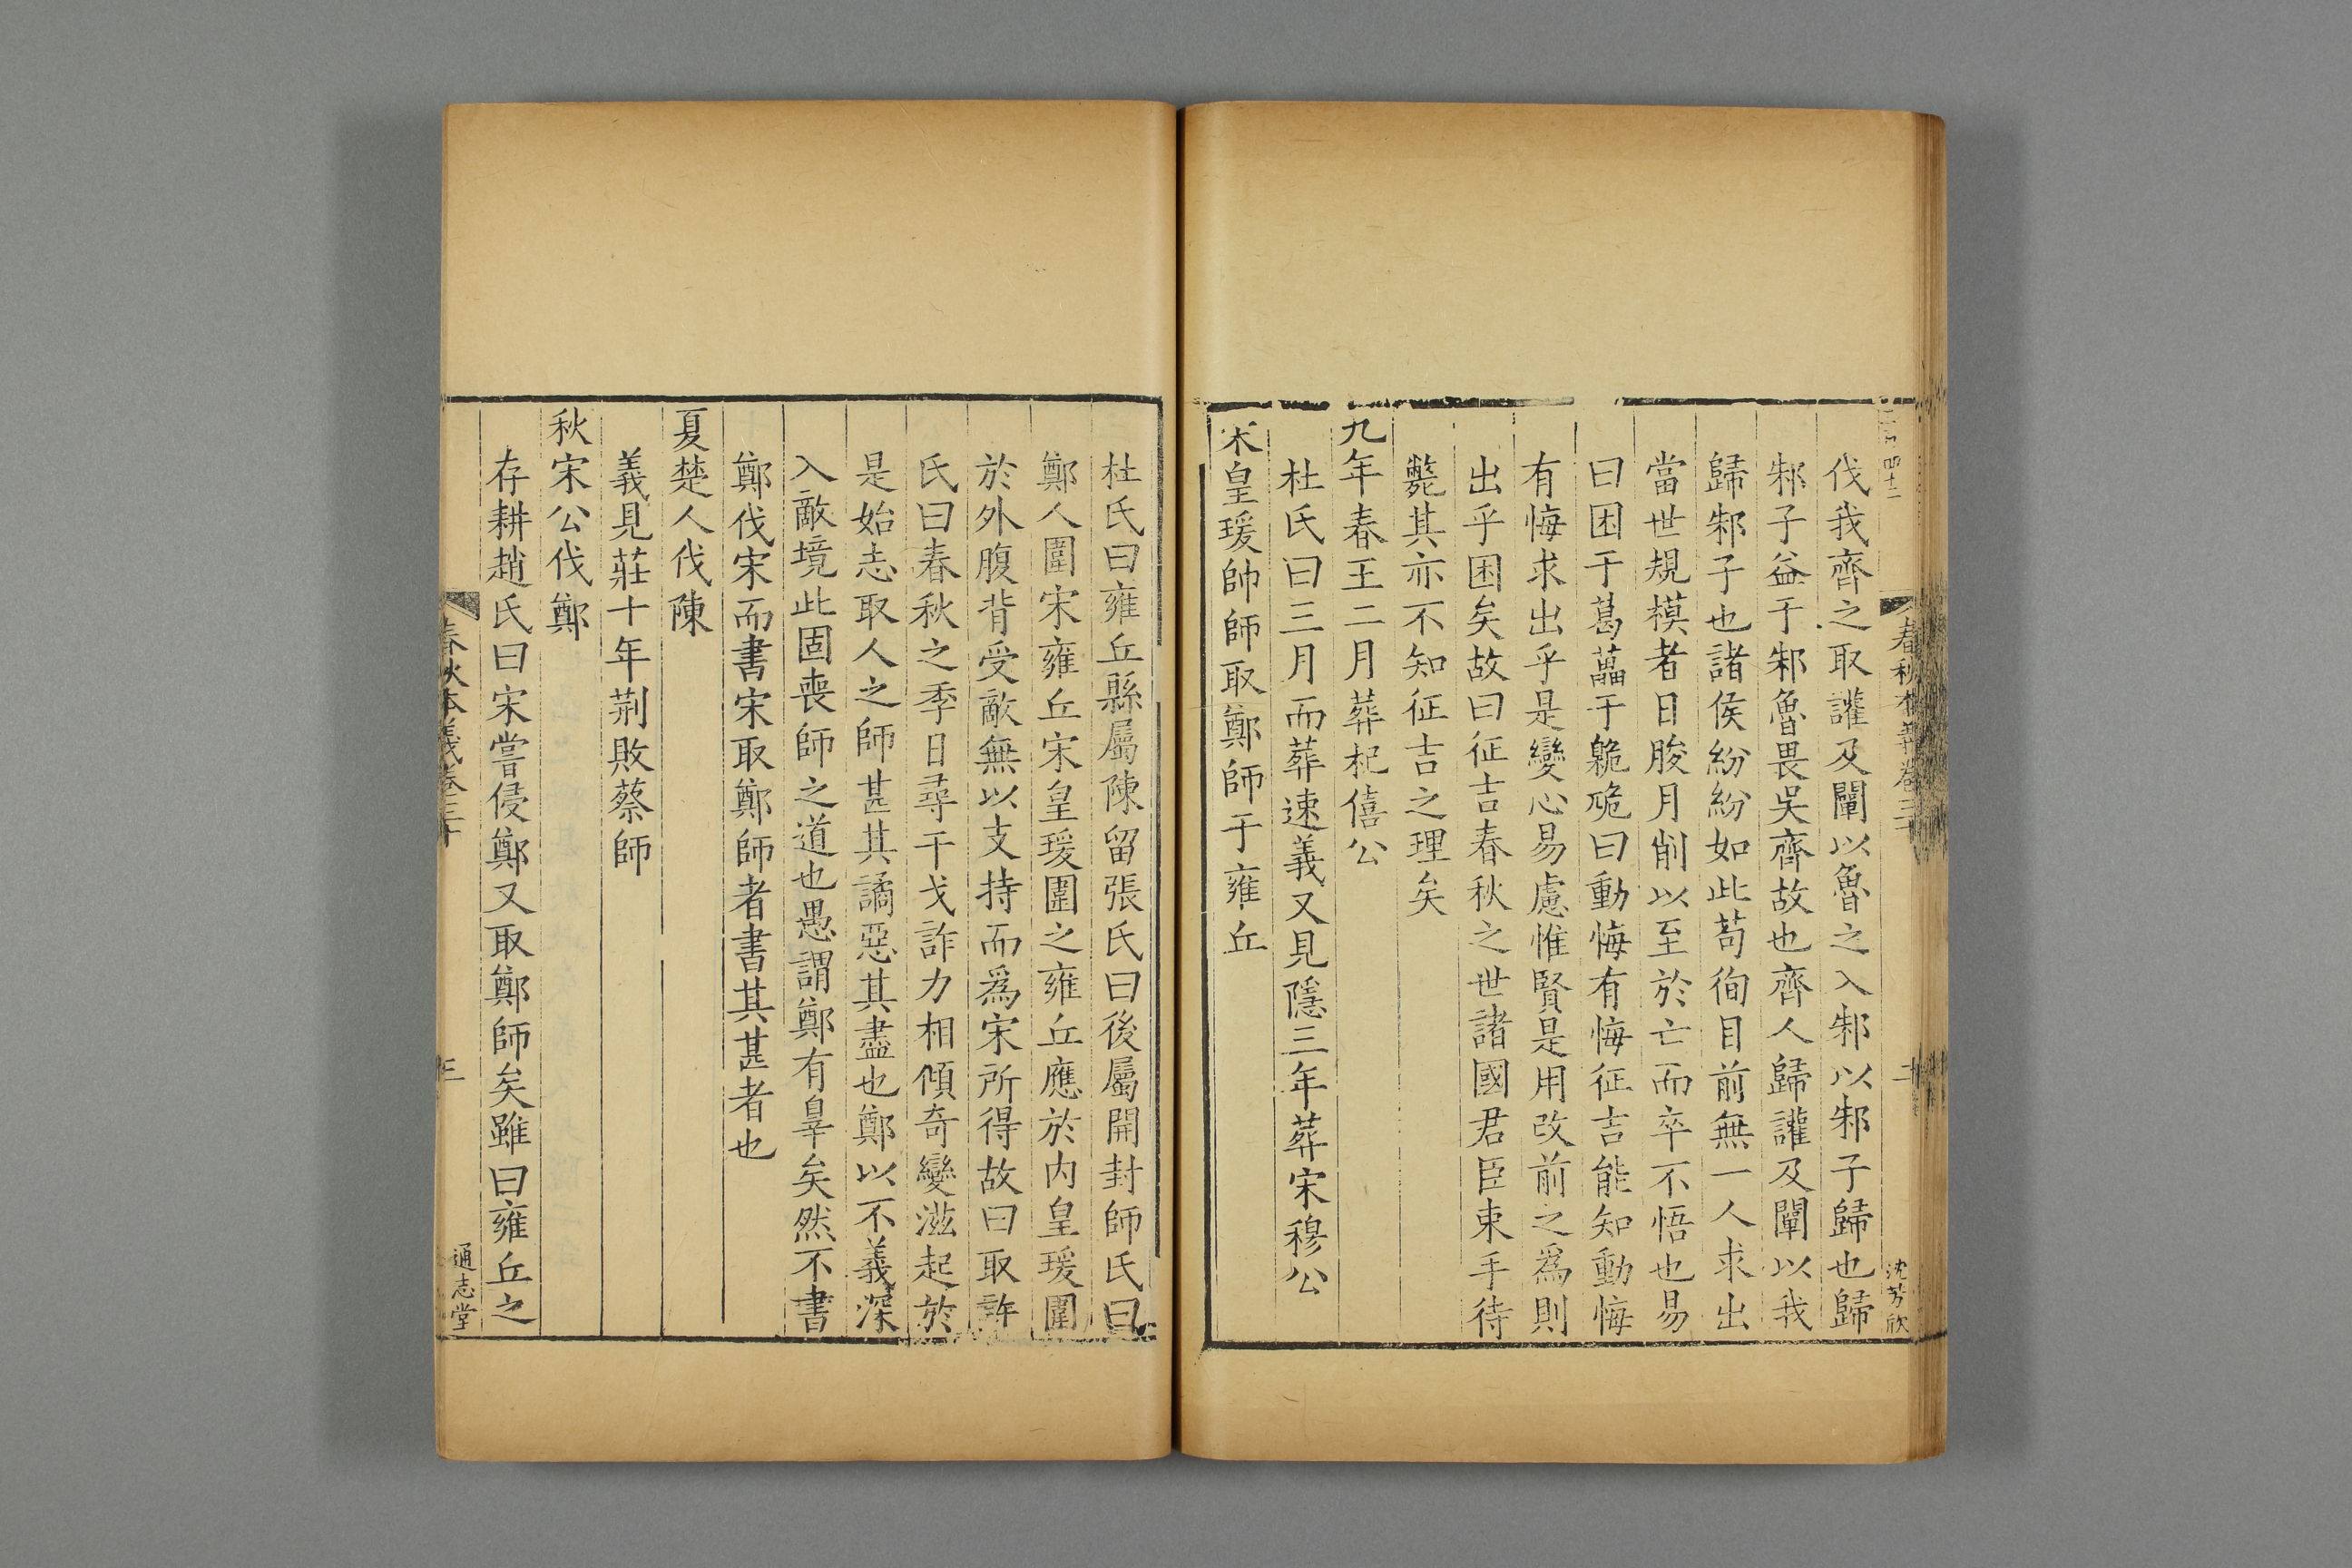 春秋本義卷三十
二
沈芳欣
伐我齊之取讙及闡以魯之入邾以邾子歸也歸
邾子益于邾魯畏吳齊故也齊人歸讙及闡以我
歸邾子也諸侯紛紛如此苟徇目前無一人求出
當世規模者日朘月削以至於亡而卒不悟也易
曰困于葛藟于臲卼曰動悔有悔征吉能知動悔
有悔求出乎是變心易慮惟賢是用改前之爲則
出乎困矣故曰征吉春秋之世諸國君臣束手待
斃其亦不知征吉之理矣
九年春王二月葬杞僖公
杜氏曰三月而葬速義又見隱三年葬宋穆公
宋皇瑗帥師取鄭師于雍丘
杜氏曰雍丘縣屬陳留張氏曰後屬開封師氏曰
鄭人圍宋雍丘宋皇瑗圍之雍丘應於内皇瑗圍
於外腹背受敵無以支持而爲宋所得故曰取許
氏曰春秋之季日尋干戈詐力相傾奇變滋起於
是始志取人之師甚其譎惡其盡也鄭以不義深
入敵境此固喪師之道也愚謂鄭有辠矣然不書
鄭伐宋而書宋取鄭師者書其甚者也
夏楚人伐陳
義見莊十年荆敗蔡師
秋宋公伐鄭
存耕趙氏曰宋嘗侵鄭又取鄭師矣雖曰雍丘之
春秋本義卷三十
三
通志堂